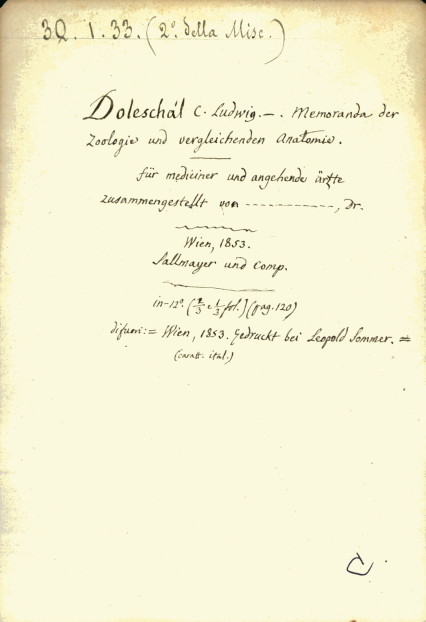 39. 1. 33. (2º. della Misc.)
Doleschál C. Ludwig. — . Memoranda der
Zoologie und vergleichenden Anatomie.
für mediciner und angehende ärzte
zusammengestellt von ----------, Dr.
Wien, 1853.
Sallmayer und Comp.
in-12º. (pag. 120)
difuori := Wien, 1853. Gedruckt bei Leopold Sommer. =
(caratt. ital.)